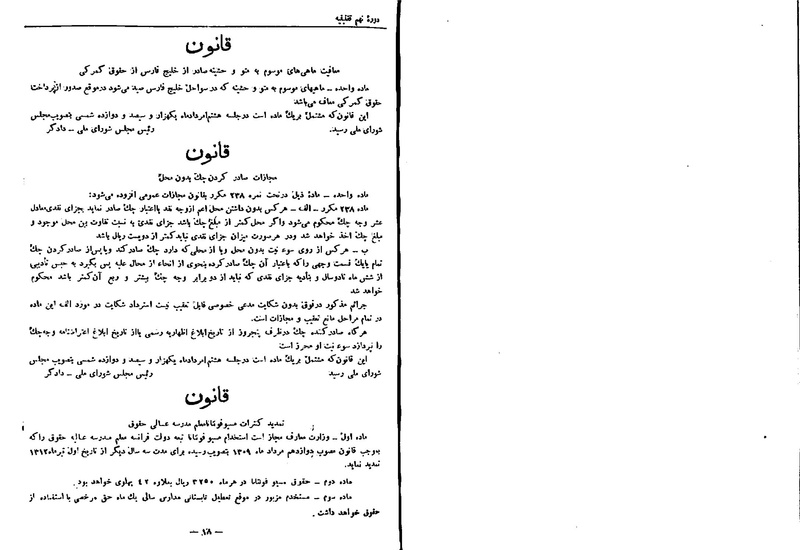 دورهٔ نهم تقنینیه
قانون
معافیت ماهی‌های موسوم به متو و حشینه صادر از خلیج فارس از حقوق گمرکی
ماده واحده – ماهیهای موسوم به متو و حشینه که در سواحل خلیج فارس صید می‌شود درموقع صدور ازپرداخت
حقوق گمرکی معاف می‌باشد
این قانون‌که مشتمل بریک ماده است درجلسه هشتم‌امردادماه یکهزار و سیصد و دوازده شمسی بتصویب‌مجلس
شورای ملی رسید. رئیس مجلس شورای ملی – دادگر
قانون
مجازات صادر کردن چك بدون محل
ماده واحده – مادهٔ ذیل درتحت نمره ۲۳۸ مکرر بقانون مجازات عمومی افزوده می‌شود:
ماده ۲۳۸ مکرر – الف – هرکس بدون داشتن محل اعم ازوجه نقد یااعتبار چك صادر نماید بجزای نقدی‌معادل
عشر وجه چك محکوم می‌شود واگر محل‌کمتر از مبلغ چك باشد جزای نقدی به نسبت تفاوت بین محل موجود و
مبلغ چك اخذ خواهد شد ودر هرصورت میزان جزای نقدی نبایدکمتر از دویست ریال باشد
ب – هرکس از روی سوء نیت بدون محل ویا از محلی‌که دارد چك صادرکند ویاپس‌از صادرکردن چك
تمام یایك قسمت وجهی راکه باعتبار آن چك صادرکرده بنحوی از انحاء از محال علیه پس بگیرد به حبس تأدیبی
از شش ماه تادوسال و بتأدیه جزای نقدی که نباید از دو برابر وجه چك بیشتر و ربع آن‌کمتر باشد محکوم
خواهد شد
جرائم مذکور درفوق بدون شکایت مدعی خصوصی قابل تعقیب نیست استرداد شکایت در مورد الف این ماده
در تمام مراحل مانع تعقیب و مجازات است.
هرگاه صادرکننده چك درظرف پنجروز از تاریخ‌ابلاغ اظهاریه رسمی یااز تاریخ ابلاغ اعتراضنامه وجه‌چك
را نپردازد سوء نیت او محرز است
این قانون‌که مشتمل بریک ماده است درجلسه هشتم‌امردادماه یکهزار و سیصد و دوازده شمسی بتصویب مجلس
شورای ملی رسید رئیس مجلس شورای ملی – دادگر
قانون
تمدید کنترات مسیوفونتانامعلم مدرسه عالی حقوق
ماده اول – وزارت معارف مجاز است استخدام مسیو فونتانا تبعه دولت فرانسه معلم مدرسه عالیه حقوق راکه
بموجب قانون مصوب دوازدهم مرداد ماه ۱۳۰۹ بتصویب‌رسیده برای مدت سه سال دیگر از تاریخ اول تیرماه۱۳۱۲
تمدید نماید.
ماده دوم – حقوق مسیو فونتانا در هرماه ۳۲۵۰ ریال بعلاوه ۴۲ پهلوی خواهد بود.
ماده سوم – مستخدم مزبور در موقع تعطیل تابستانی مدارس سالی یك ماه حق مرخصی با استفاده از
حقوق خواهد داشت.